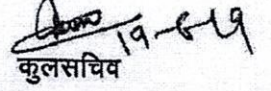 19-6-19
कुलसचिव